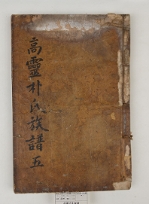 高靈朴氏族譜 五